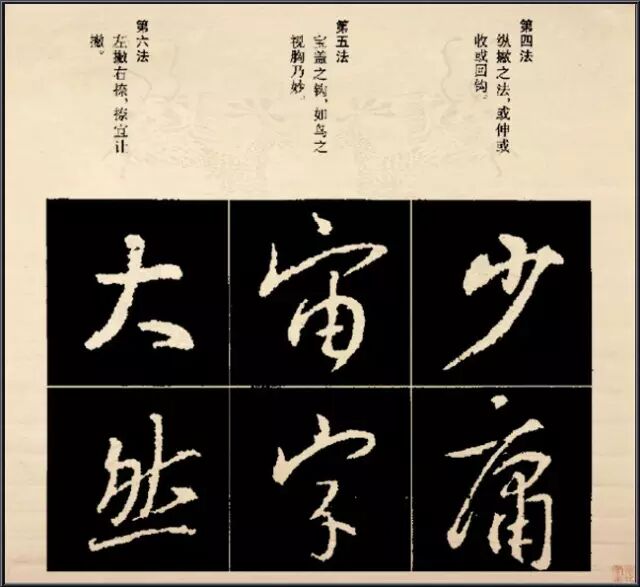 第四法
纵撇之法，或伸或
收或回钩。
第五法
宝盖之钩，如鸟之
视胸乃妙。
第六法
左撇右捺，捺宜让
撇。
少
庸
宙
字
大
然